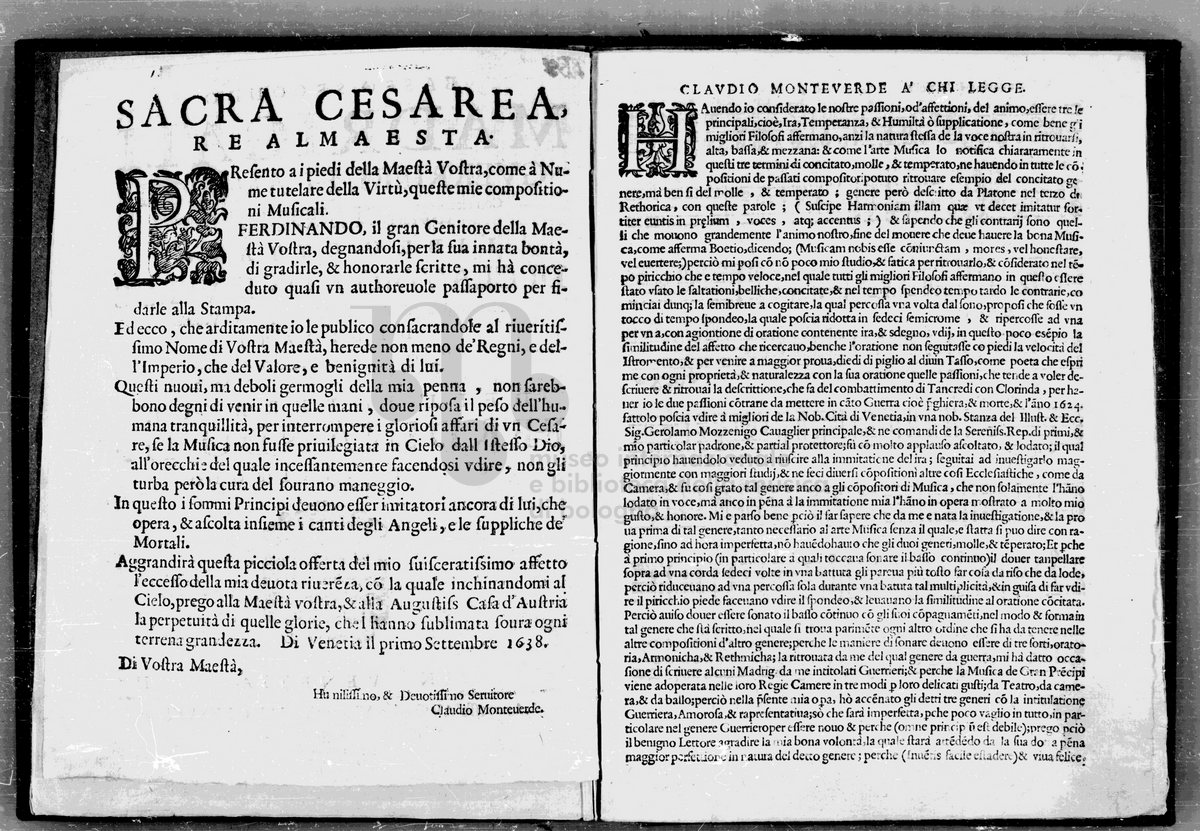 SACRA CESAREA,
REAL MAESTA.
PResento a i piedi della Maestà Vostra, come à Nu-
me tutelare della Virtù, queste mie compositio-
ni Musicali.
FERDINANDO, il gran Genitore della Mae-
stà Vostra, degnandosi, per la sua innata bontà,
di gradirle, & honorarle scritte, mi hà conce-
duto quasi vn authoreuole passaporto per fi-
darle alla Stampa.
Ed ecco, che arditamente io le publico consacrandole al riueritis-
simo Nome di Vostra Maestà, herede non meno de'Regni, e del-
l'Imperio, che del Valore, e benignità di lui.
Questi nuoui, ma deboli germogli della mia penna, non sareb-
bono degni di venir in quelle mani, doue riposa il peso dell'hu-
mana tranquillità, per interrompere i gloriosi affari di vn Cesa-
re, se la Musica non fusse priuilegiata in Cielo dall Istesso Dio,
all'orecchie del quale incessantemente facendosi vdire, non gli
turba però la cura del sourano maneggio.
In questo i sommi Principi deuono esser imitatori ancora di lui, che
opera, & ascolta insieme i canti degli Angeli, e le suppliche de'
Mortali.
Aggrandirà questa picciola offerta del mio suisceratissimo affetto
l'eccesso della mia deuota riuerēza, cō la quale inchinandomi al
Cielo, prego alla Maestà vostra, & alla Augustiss Casa d'Austria
la perpetuità di quelle glorie, che l hanno sublimata soura ogni
terrena grandezza. Di Venetia il primo Settembre 1638.
Di Vostra Maestà,
Humilissimo, & Deuotissimo Seruitore
Claudio Monteuerde.
CLAVDIO MONTEVERDE A' CHI LEGGE.
HAuendo io considerato le nostre passioni, od'affettioni, del animo, essere tre le
principali, cioè, Ira, Temperanza, & Humiltà ò supplicatione, come bene gli
migliori Filosofi affermano, anzi la natura stessa de la voce nostra in ritrouarsi,
alta, bassa, & mezzana: & come l'arte Musica lo notifica chiararamente in
questi tre termini di concitato, molle, & temperato, ne hauendo in tutte le cō-
positioni de passati compositori potuto ritrouare esempio del concitato ge-
nere, mà ben si del molle, & temperato; genere però descritto da Platone nel terzo de
Rethorica, con queste parole; (Suscipe Harmoniam illam quæ vt decet imitatur for-
titer euntis in prelium, voces, atq; accentus;) & sapendo che gli contrarij sono quel-
li che mouono grandemente l'animo nostro, fine del mouere che deue hauere la bona Musi-
ca, come afferma Boetio, dicendo; (Musicam nobis esse cōniunctam, mores, vel honestare,
vel euertere;) perciò mi posi cō nō poco mio studio, & fatica per ritrouarlo, & cōsiderato nel tē-
po piricchio che e tempo veloce, nel quale tutti gli migliori Filosofi affermano in questo essere
stato vsato le saltationi, belliche, concitate, & nel tempo spendeo tempo tardo le contrarie, co
minciai dunq; la semibreue a cogitare, la qual percossa vna volta dal sono, proposi che fosse vn
tocco di tempo spondeo, la quale poscia ridotta in sedeci semicrome, & ripercosse ad vna
per vna, con agiontione di oratione contenente ira, & sdegno, vdij, in questo poco esēpio la
similitudine del affetto che ricercauo, benche l'oratione non seguitasse co piedi la velocità del
Istromento, & per venire a maggior proua, diedi di piglio al diuin Tasso, come poeta che espri
me con ogni proprietà, & naturalezza con la sua oratione quelle passioni, che tende a voler de-
scriuere & ritrouai la descrittione, che fa del combattimento di Tancredi con Clorinda, per ha-
uer io le due passioni cōtrarie da mettere in cāto Guerra cioè p̄ghiera, & morte, & l'āno 1624.
fattolo poscia vdire à migliori de la Nob. Città di Venetia, in vna nob. Stanza del Illust. & Ecc.
Sig. Gerolamo Mozzenigo Cauaglier principale, & ne comandi de la Sereniss. Rep. di primi, &
mio particolar padrone, & partial protettore; fù cō molto applauso ascoltato, & lodato; il qual
principio hauendolo veduto à riuscire alla immitatione del ira; seguitai ad inuestigarlo mag-
giormente con maggiori studij, & ne feci diuersi cōpositioni altre così Ecclesiastiche, come da
Camera, & fù così grato tal genere anco a gli cōpositori di Musica, che non solamente l'hāno
lodato in voce, mà anco in pēna à la immitatione mia l'hāno in opera mostrato a molto mio
gusto, & honore. Mi e parso bene pciò il far sapere che da me e nata la inuestigatione, & la pro
ua prima di tal genere, tanto necessario al arte Musica senza il quale, e statta si puo dire con ra-
gione, sino ad hora imperfetta, nō hauēdo hauto che gli duoi generi, molle, & tēperato; Et pche
a primo principio (in particolare a quali toccaua sonare il basso continuo) il douer tanpellare
sopra ad vna corda sedeci volte in vna battuta gli pareua più tosto far cosa da riso che da lode,
perciò riduceuano ad vna percossa sola durante vna batuta tal multiplicità, & in guisa di far vdi-
re il piricchio piede faceuano vdire il spondeo, & leuauano la similitudine al oratione cōcitata.
Perciò auiso douer essere sonato il basso cōtinuo cō gli suoi cōpagnamēti, nel modo & forma in
tal genere che stà scritto, nel quale si troua parimēte ogni altro ordine che si ha da tenere nelle
altre compositioni d'altro genere; perche le maniere di sonare deuono essere di tre sorti, orato-
ria, Armonicha, & Rethmicha; la ritrouata da me del qual genere da guerra, mi hà datto occa-
sione di scriuere alcuni Madrig. da me intitolati Guerrieri; & perche la Musica de Gran Prēcipi
viene adoperata nelle loro Regie Camere in tre modi p loro delicati gusti; da Teatro, da came-
ra, & da ballo; perciò nella p̄sente mia opa, hò accēnato gli detti tre generi cō la intitulatione
Guerriera, Amorosa, & rapresentatiua; sò che sarà imperfetta, pche poco vaglio in tutto, in par-
ticolare nel genere Guerriero per essere nouo & perche (omne principiū est debile); prego pciò
il benigno Lettore agradire la mia bona volontà, la quale starà attēdēdo da la sua dotta pēna
maggior perfettione in natura del detto genere; perche (Inuētis facile est adere) & viua felice.